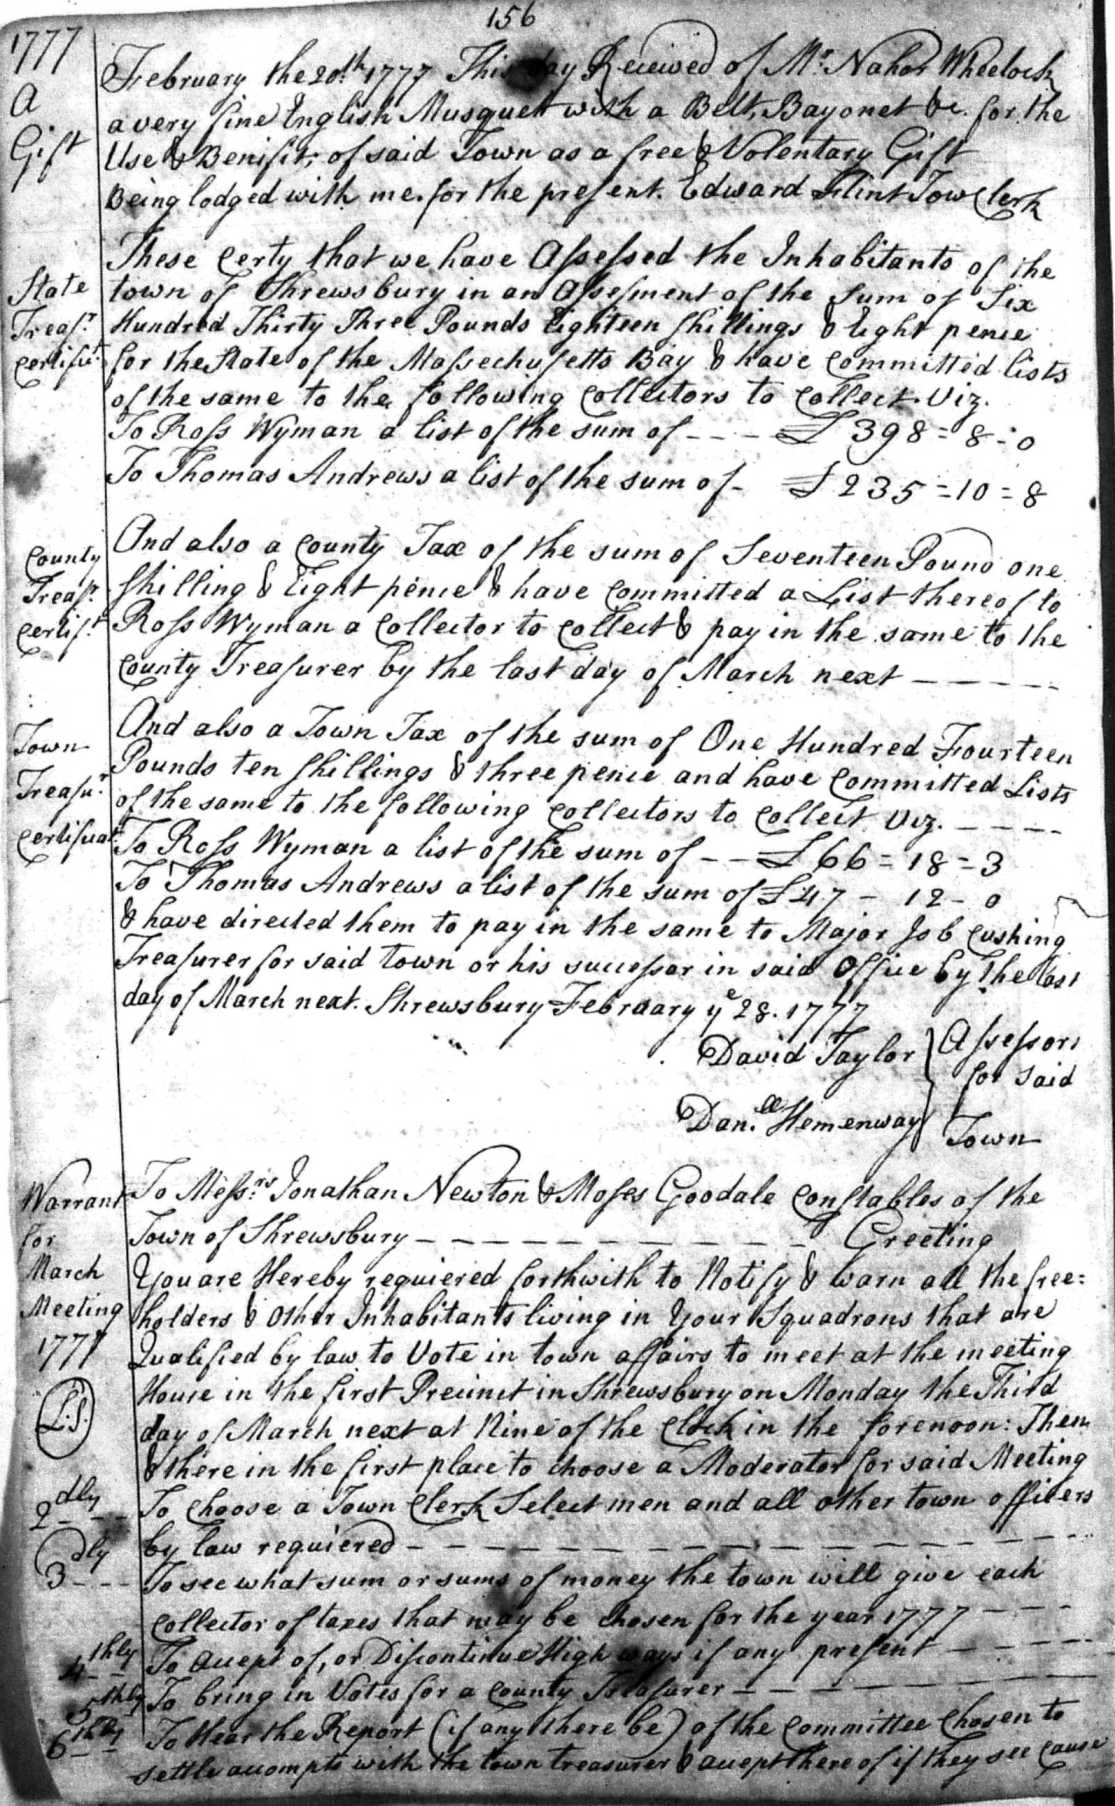 156
1777
A
Gift
February the 20th 1777 This day Received of Mr Nahor Wheelock
a very fine English Musquett with a Belt, Bayonet &c. for the
Use & Benifit, of said Town as a free & Volentary Gift
Being lodged with me for the present. Edward Flint Tow Clerk
State
Treasr
certifict
These Certy that we have Assessed the Inhabitants of the
town of Shrewsbury in an Assesment of the Sum of Six
Hundred Thirty Three Pounds Eighteen Shillings & Eight pence
for the State of the Massechusetts Bay & have committed lists
of the same to the following collectors to collect. Viz.
To Ross Wyman a list of the sum of - - - £ 398 = 8 = 0
To Thomas Andrews a list of the sum of - £ 235 = 10 = 8
County
Treasr
certift
And also a County Tax of the sum of Seventeen Pound one
Shilling & Eight pence & have committed a List thereof to
Ross Wyman a Collector to collect & pay in the same to the
County Treasurer by the last day of March next - - - - -
Town
Treasur
certificat
And also a Town Tax of the sum of One Hundred Fourteen
Pounds ten Shillings & three pence and have committed Lists
of the same to the following collectors to collect Viz. - - - -
To Ross Wyman a list of the sum of - - £66 = 18 = 3
To Thomas Andrews a list of the sum of £47 - 12 - 0
& have directed them to pay in the same to Major Job Cushing
Treasurer for said town or his successor in said Office by the last
day of March next. Shrewsbury February ye 28. 1777
David Taylor } Assessors
for said
Danll Hemenway } Town
Warrant
for
March
Meeting
1777
L.S.
To Messrs Jonathan Newton & Moses Goodale Constables of the
Town of Shrewsbury - - - - - - - - - - Greeting
You are Hereby requiered forthwith to Notify & warn all the free=
holders & Other Inhabitants living in Your Squadrons that are
Qualified by law to Vote in town affairs to meet at the meeting
House in the first Precinct in Shrewsbury on Monday the Third
day of March next at Nine of the Clock in the forenoon: Then
& there in the first place to choose a Moderator for said Meeting
2dly - - To Choose a Town Clerk Select men and all other town officers
by law requiered - - - - - - - - - - - -
3dly - - - To see what sum or sums of money the town will give each
collector of taxes that may be chosen for the year 1777 - - - -
4thly To accept of, or Discontinue High ways if any present - - - -
5thly To bring in Votes for a County Treasurer - - - - - - - -
6thly To Hear the Report (if any there be) of the Committee Chosen to
settle accompts with the town treasurer & accept thereof if they see cause